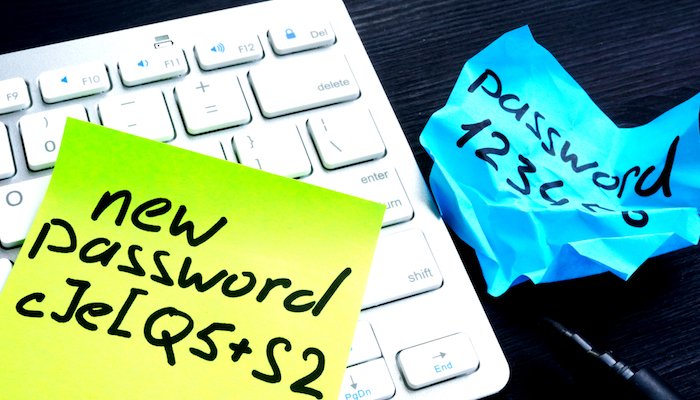 new
password
cJe[Q5+S2
password
F9
F10
F11
F12
Del
delete
enter
shift
End
PgDn
O
0